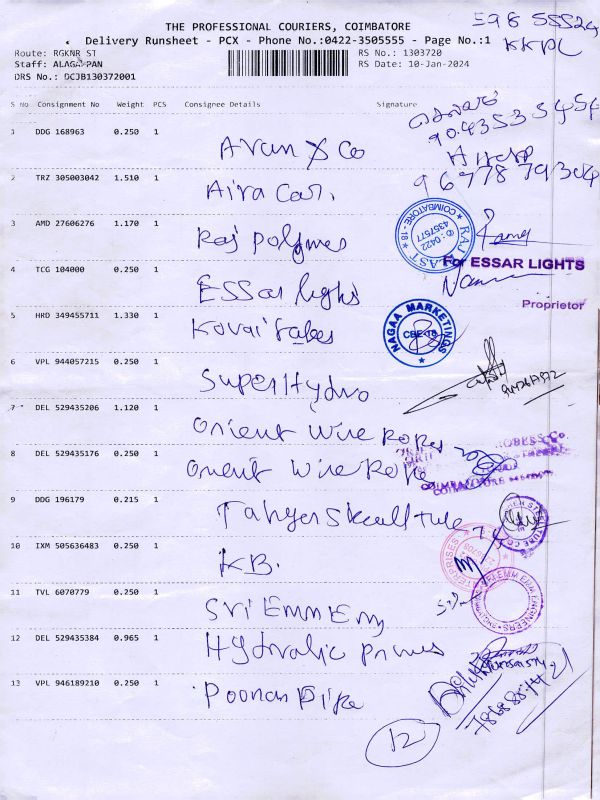 THE PROFESSIONAL COURIERS, COIMBATORE
598 55524
Delivery Runsheet - PCX - Phone No.:0422-3505555 - Page No.:1
KKPL
Route: RGKNR ST
RS No.: 1303720
Staff: ALAGAPPAN
RS Date: 10-Jan-2024
DRS No.: DCJB130372001
S No Consignment No Weight PCS Consignee Details Signature
90.4353 5454
1 DDG 168963 0.250 1 Avan & Co
96778 79304
2 TRZ 305003042 1.510 1 Aira Car.
3 AMD 27606276 1.170 1 Raj Polymes
COIMBATORE - 18 ★ RAJ
✆ : 0422 4357577
4 TCG 104000 0.250 1 ESSar lights
For ESSAR LIGHTS
Proprietor
5 HRD 349455711 1.330 1 Kovai Fabes
NAGAA MARKETINGS
CBE-18
6 VPL 944057215 0.250 1 Super Hydro
7 DEL 529435206 1.120 1 Orient Wire Ropes
8 DEL 529435176 0.250 1 Orient Wire Rope
ROBERS Co.
COIMBATORE
9 DDG 196179 0.215 1
10 IXM 505636483 0.250 1 K.B.
ENTERPRISES
11 TVL 6070779 0.250 1 Sri Emm Eng
SRI EMM ENGINEERS
12 DEL 529435384 0.965 1 Hydralic Prims
13 VPL 946189210 0.250 1 Poonam Pipe
12